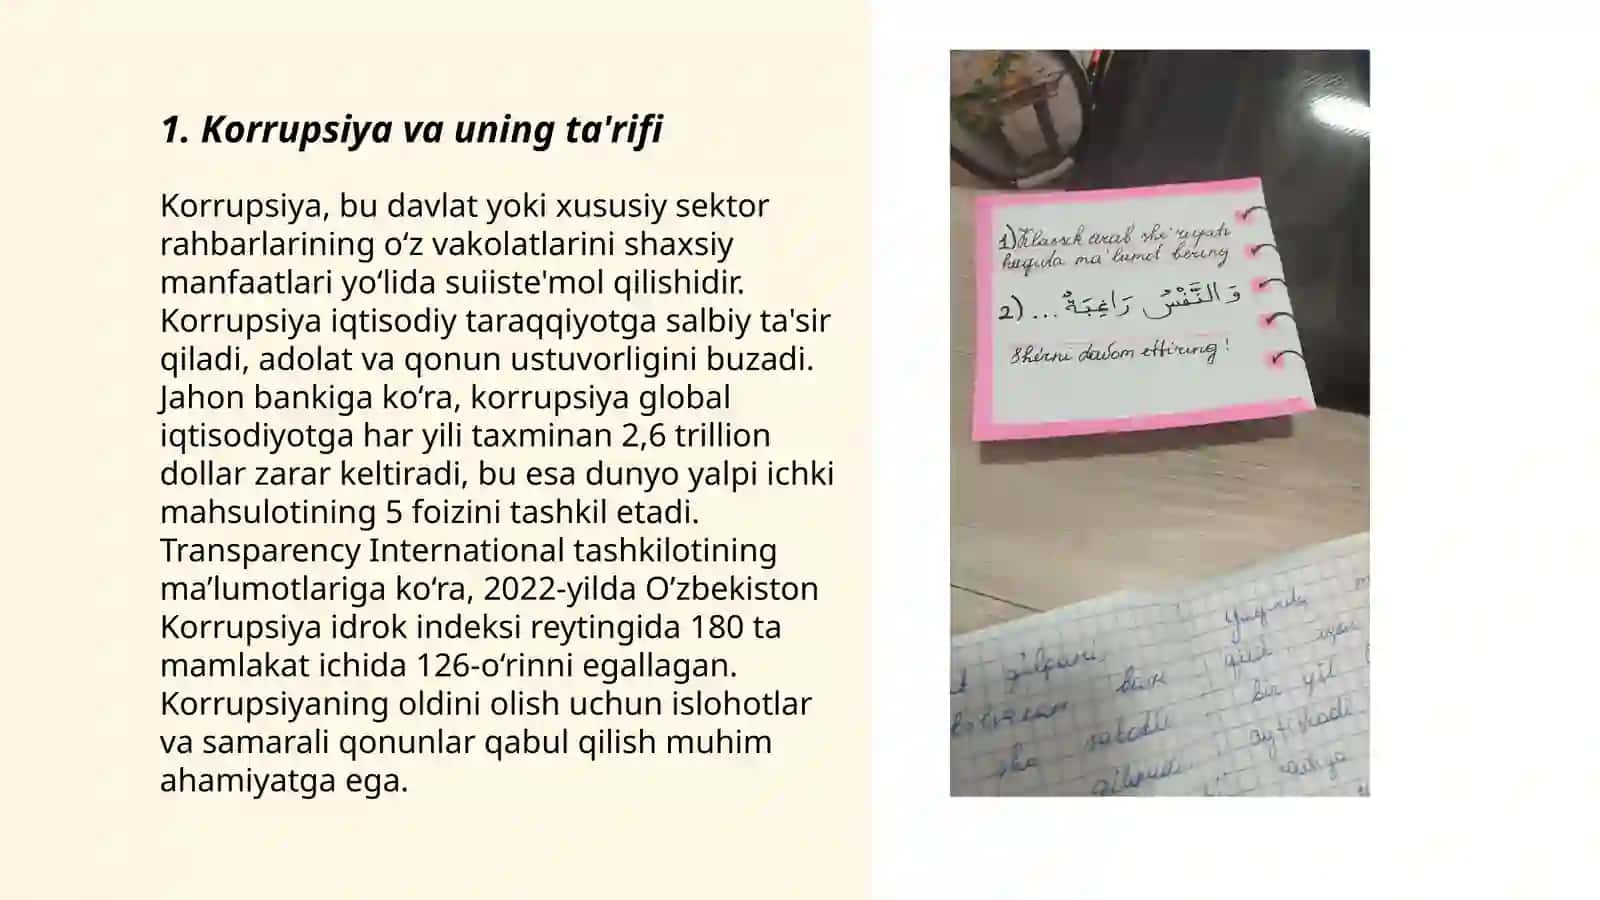 1. Korrupsiya va uning ta'rifi
Korrupsiya, bu davlat yoki xususiy sektor
rahbarlarining o‘z vakolatlarini shaxsiy
manfaatlari yo‘lida suiiste'mol qilishidir.
Korrupsiya iqtisodiy taraqqiyotga salbiy ta'sir
qiladi, adolat va qonun ustuvorligini buzadi.
Jahon bankiga ko‘ra, korrupsiya global
iqtisodiyotga har yili taxminan 2,6 trillion
dollar zarar keltiradi, bu esa dunyo yalpi ichki
mahsulotining 5 foizini tashkil etadi.
Transparency International tashkilotining
ma’lumotlariga ko‘ra, 2022-yilda O’zbekiston
Korrupsiya idrok indeksi reytingida 180 ta
mamlakat ichida 126-o‘rinni egallagan.
Korrupsiyaning oldini olish uchun islohotlar
va samarali qonunlar qabul qilish muhim
ahamiyatga ega.
1) Klassik arab she'riyati
haqida ma'lumot bering
2) وَالنَّفْسُ رَاغِبَةٌ ...
She'rni davom ettiring!
bir yil